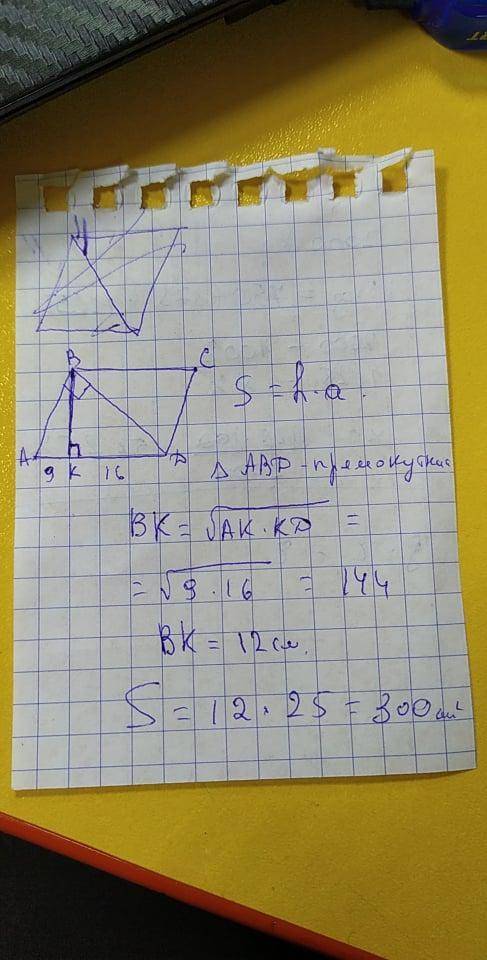 B C
A 9 K 16 D
S = h · a.
Δ ABD - прямокутний
BK = √AK · KD =
= √9 · 16 = 144
BK = 12 см.
S = 12 · 25 = 300 см²